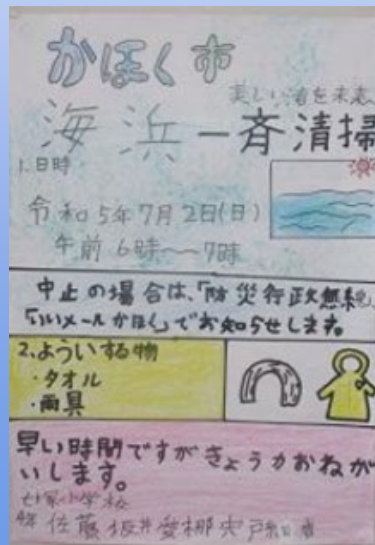 かほく市
美しい渚を未来へ
海浜一斉清掃
1.日時
令和5年7月2日(日)
午前6時〜7時
中止の場合は、「防災行政無線」
「いいメールかほく」でお知らせします。
2.よういする物
・タオル
・雨具
早い時間ですがきょうかおねが
いします。
七塚小学校
4年 佐藤 坂井